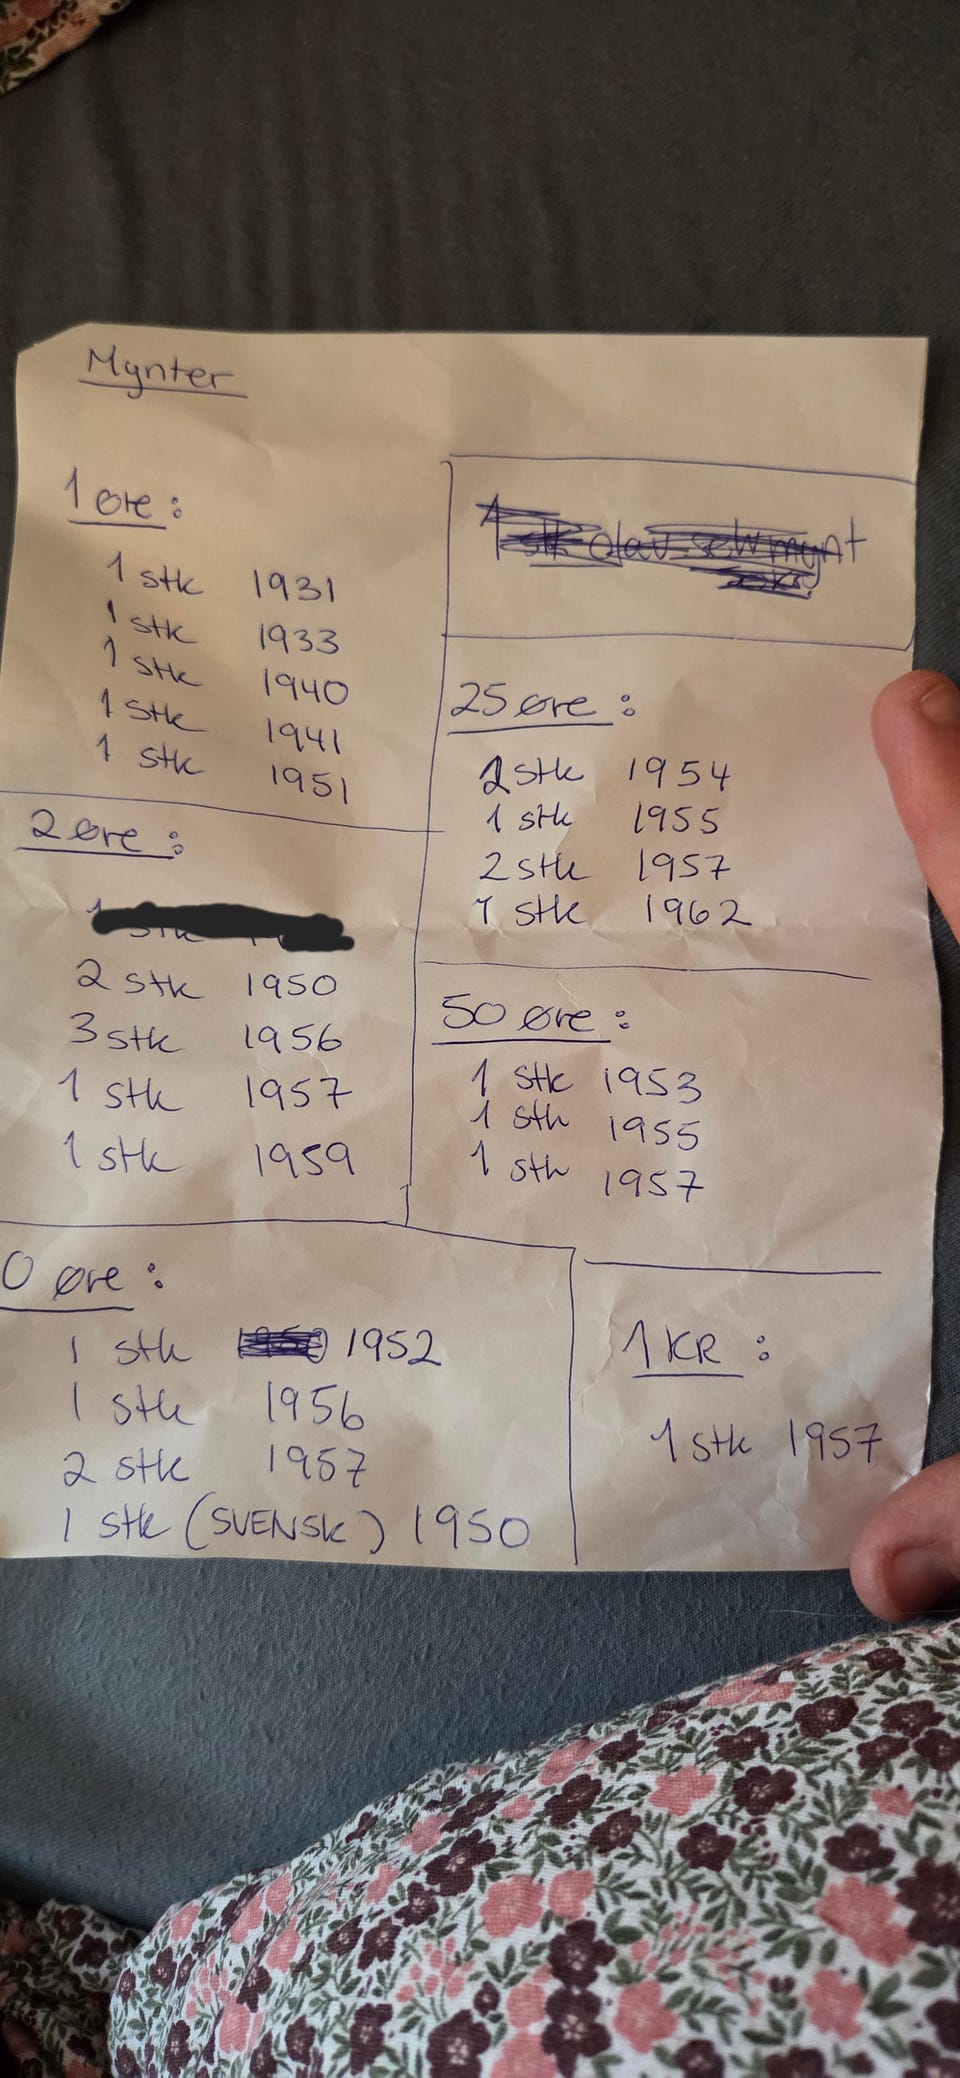 Mynter
1 øre:
1 stk 1931
1 stk 1933
1 stk 1940
1 stk 1941
1 stk 1951
2 øre:
2 stk 1950
3 stk 1956
1 stk 1957
1 stk 1959
0 øre:
1 stk 1952
1 stk 1956
2 stk 1957
1 stk (SVENSK) 1950
25 øre:
stk 1954
1 stk 1955
2 stk 1957
1 stk 1962
50 øre:
1 stk 1953
1 stk 1955
1 stk 1957
1 KR:
1 stk 1957